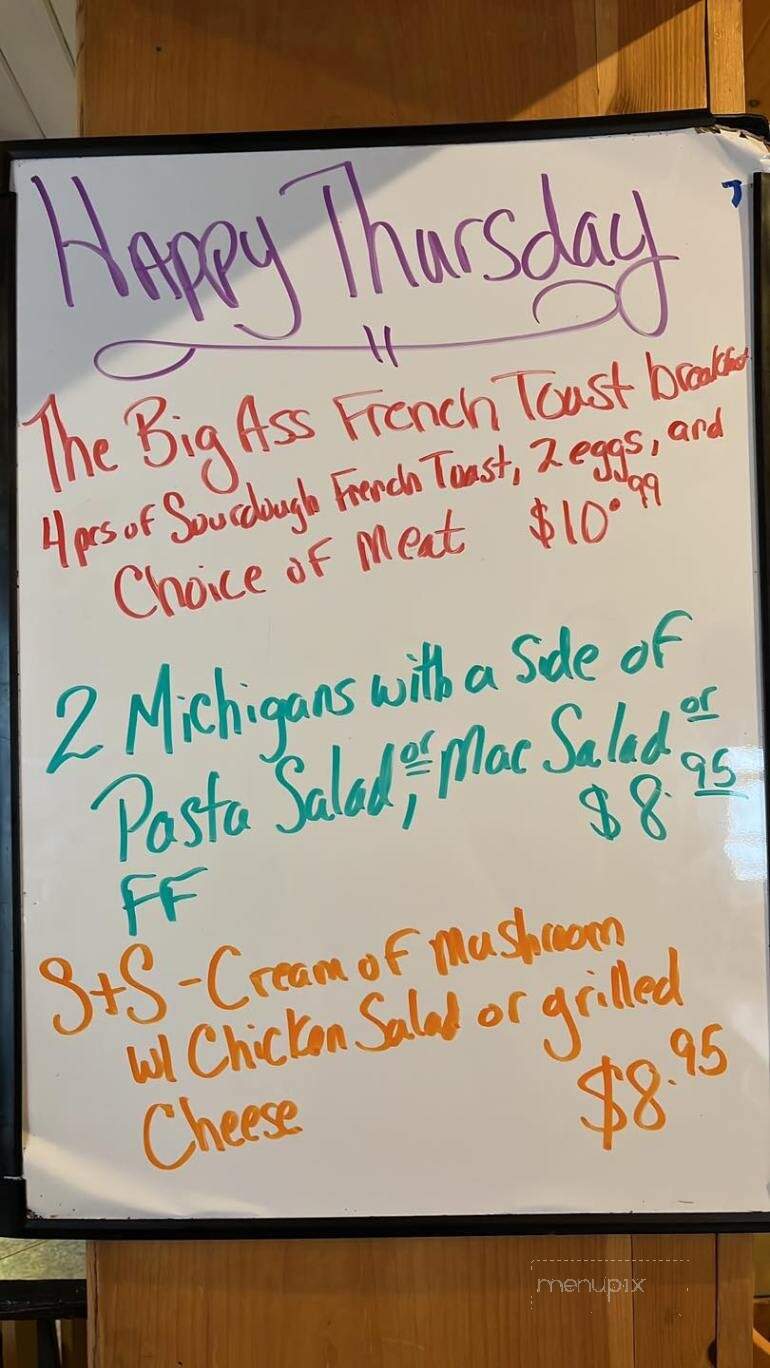 Happy Thursday
The Big Ass French Toast breakfast
4 pcs of Sourdough French Toast, 2 eggs, and
Choice of Meat $10.99
2 Michigans with a Side of
Pasta Salad, or Mac Salad or
FF $8.95
S+S - Cream of Mushroom
w/ Chicken Salad or grilled
Cheese $8.95
menupix